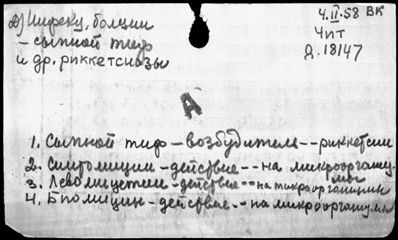 д) Инфекц. болезни
– сыпной тиф
и др. риккетсиозы
4.II.58 ВК
Чит
Д. 18147
А
1. Сыпной тиф – возбудитель – – риккетсии
2. Синтомицин – действие – – на микроорганизмы
3. Левомицетин – действие – – на микроорганизмы
4. Биомицин – действие – – на микроорганизмы